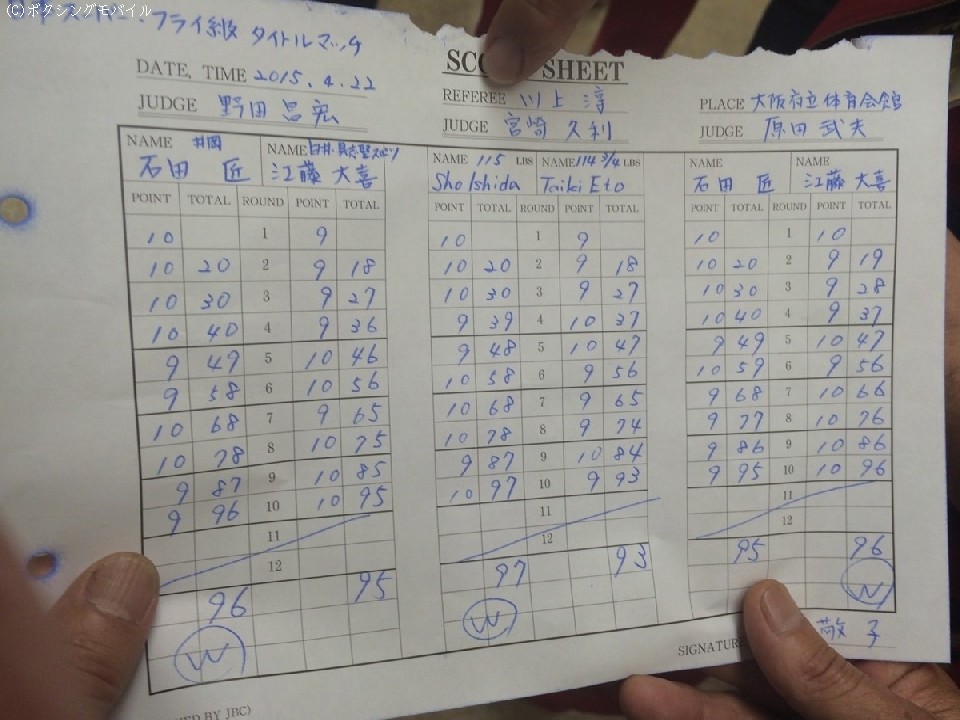 (C)ボクシングモバイル
フライ級 タイトルマッチ
SHEET
DATE, TIME 2015.4.22
REFEREE 川上 淳
PLACE 大阪府立体育会館
JUDGE 野田昌宏
JUDGE 宮崎久利
JUDGE 原田武夫
NAME 井岡 NAME 白井・具志堅スポーツ NAME 115 LBS NAME 114 3/4 LBS NAME NAME
石田 匠 江藤大喜 Sho Ishida Taiki Eto 石田 匠 江藤大喜
POINT TOTAL ROUND POINT TOTAL POINT TOTAL ROUND POINT TOTAL POINT TOTAL ROUND POINT TOTAL
10 1 9 10 1 9 10 1 10
10 20 2 9 18 10 20 2 9 18 10 20 2 9 19
10 30 3 9 27 10 30 3 9 27 10 30 3 9 28
10 40 4 9 36 9 39 4 10 37 10 40 4 9 37
9 49 5 10 46 9 48 5 10 47 9 49 5 10 47
9 58 6 10 56 10 58 6 9 56 10 59 6 9 56
10 68 7 9 65 10 68 7 9 65 9 68 7 10 66
10 78 8 10 75 10 78 8 9 74 9 77 8 10 76
9 87 9 10 85 9 87 9 10 84 9 86 9 10 86
9 96 10 10 95 10 97 10 9 93 9 95 10 10 96
11 11 11
12 12 12
96 95 97 93 95 96
W W W
SIGNATURE 敬子
BY JBC)